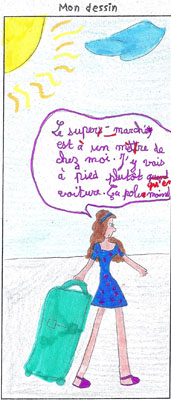 Mon dessin
Le super-marché
est à un mètre de
chez moi. J'y vais
à pied plutôt qu'en
voiture. Ça pollue moins